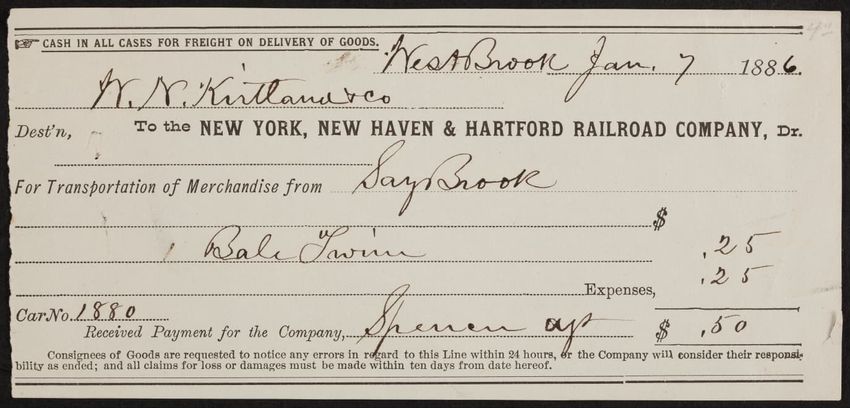 CASH IN ALL CASES FOR FREIGHT ON DELIVERY OF GOODS.
WestBrook Jan. 7 1886.
W. N. Kirtland & co
Dest'n, To the NEW YORK, NEW HAVEN & HARTFORD RAILROAD COMPANY, Dr.
For Transportation of Merchandise from SayBrook
$
1 Bale Twine .25
Expenses, .25
Car No. 1880
Received Payment for the Company, Spencer agt $ .50
Consignees of Goods are requested to notice any errors in regard to this Line within 24 hours, or the Company will consider their responsi-
bility as ended; and all claims for loss or damages must be made within ten days from date hereof.